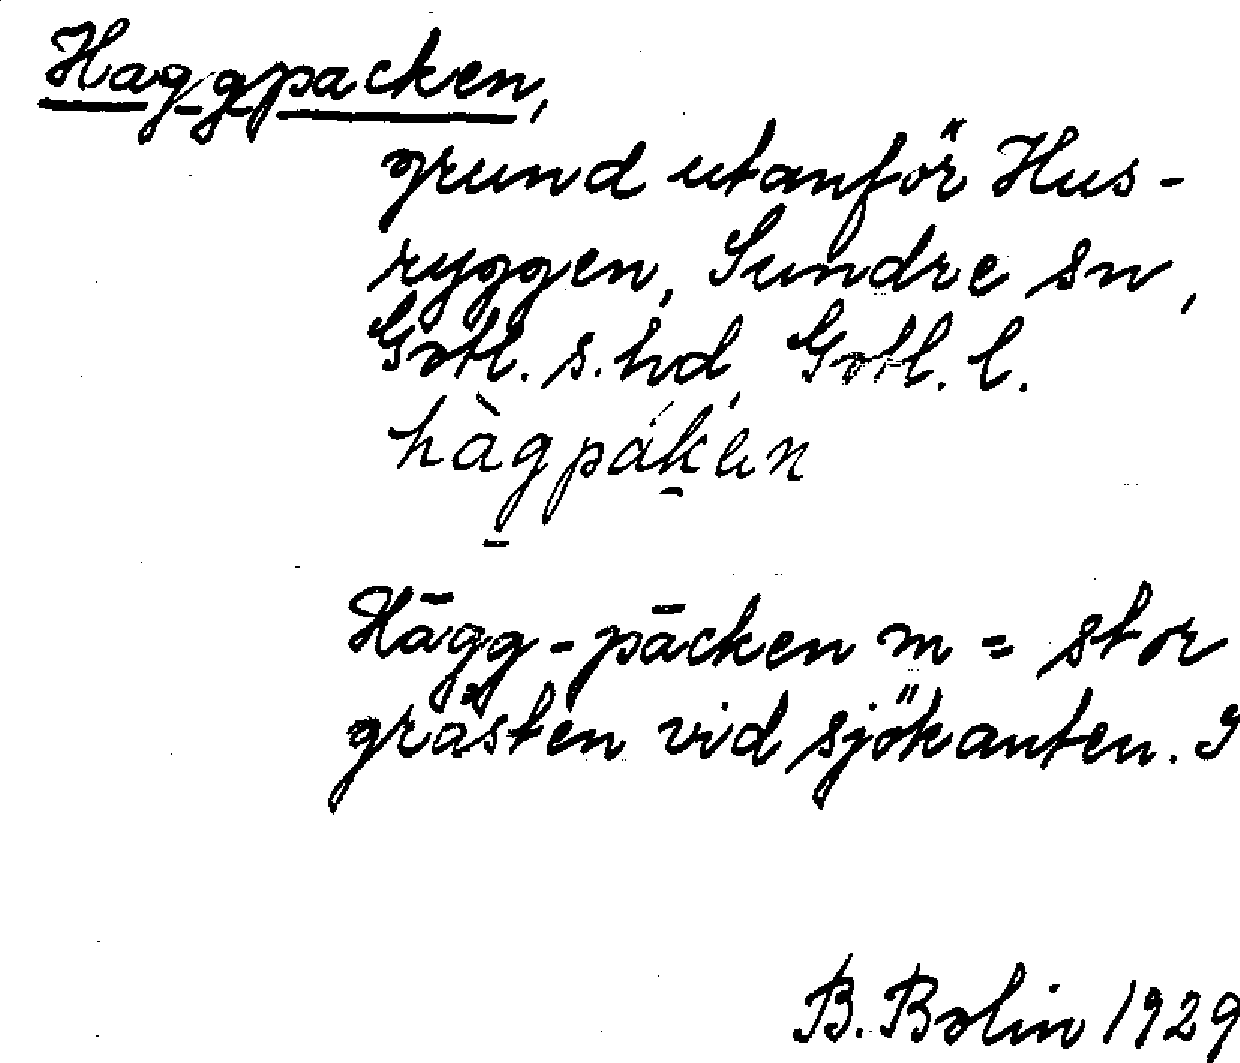 Haggpacken,
grund utanför Hus-
ryggen, Sundre sn,
Gotl. s. hd, Gotl. l.
hàg̱páḵen
Hāgg-pācken m = stor
gråsten vid sjökanten. I
B. Bolin 1929